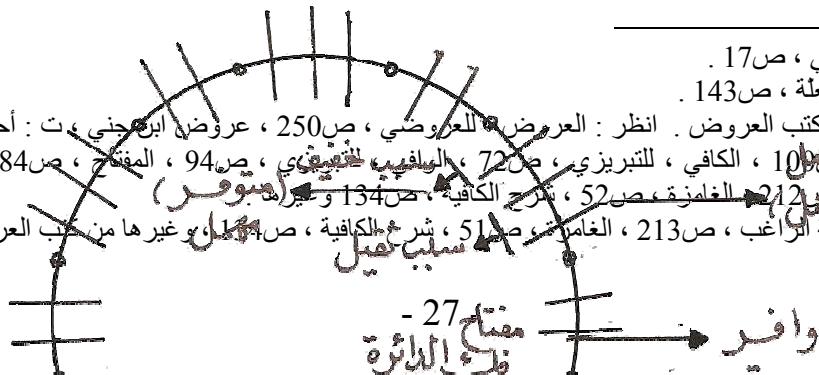 ي ، ص17 .
علة ، ص143 .
كتب العروض . انظر : العروض للعروضي ، ص250 ، عروض ابن جني ، ت : أح
ص10 ، الكافي ، للتبريزي ، ص72 ، الوافي ، للتبريزي ، ص94 ، المفتاح ، ص84
سبب خفيف (متوفر)
212 ، الغامزة ، ص52 ، شرح الكافية ، ص134 وغيرها
مهمل
الراغب ، ص213 ، الغامزة ، ص51 ، شرح الكافية ، ص134 ، وغيرها من كتب العر
سبب ثقيل
- 27
مفتاح
فك الدائرة
وافر